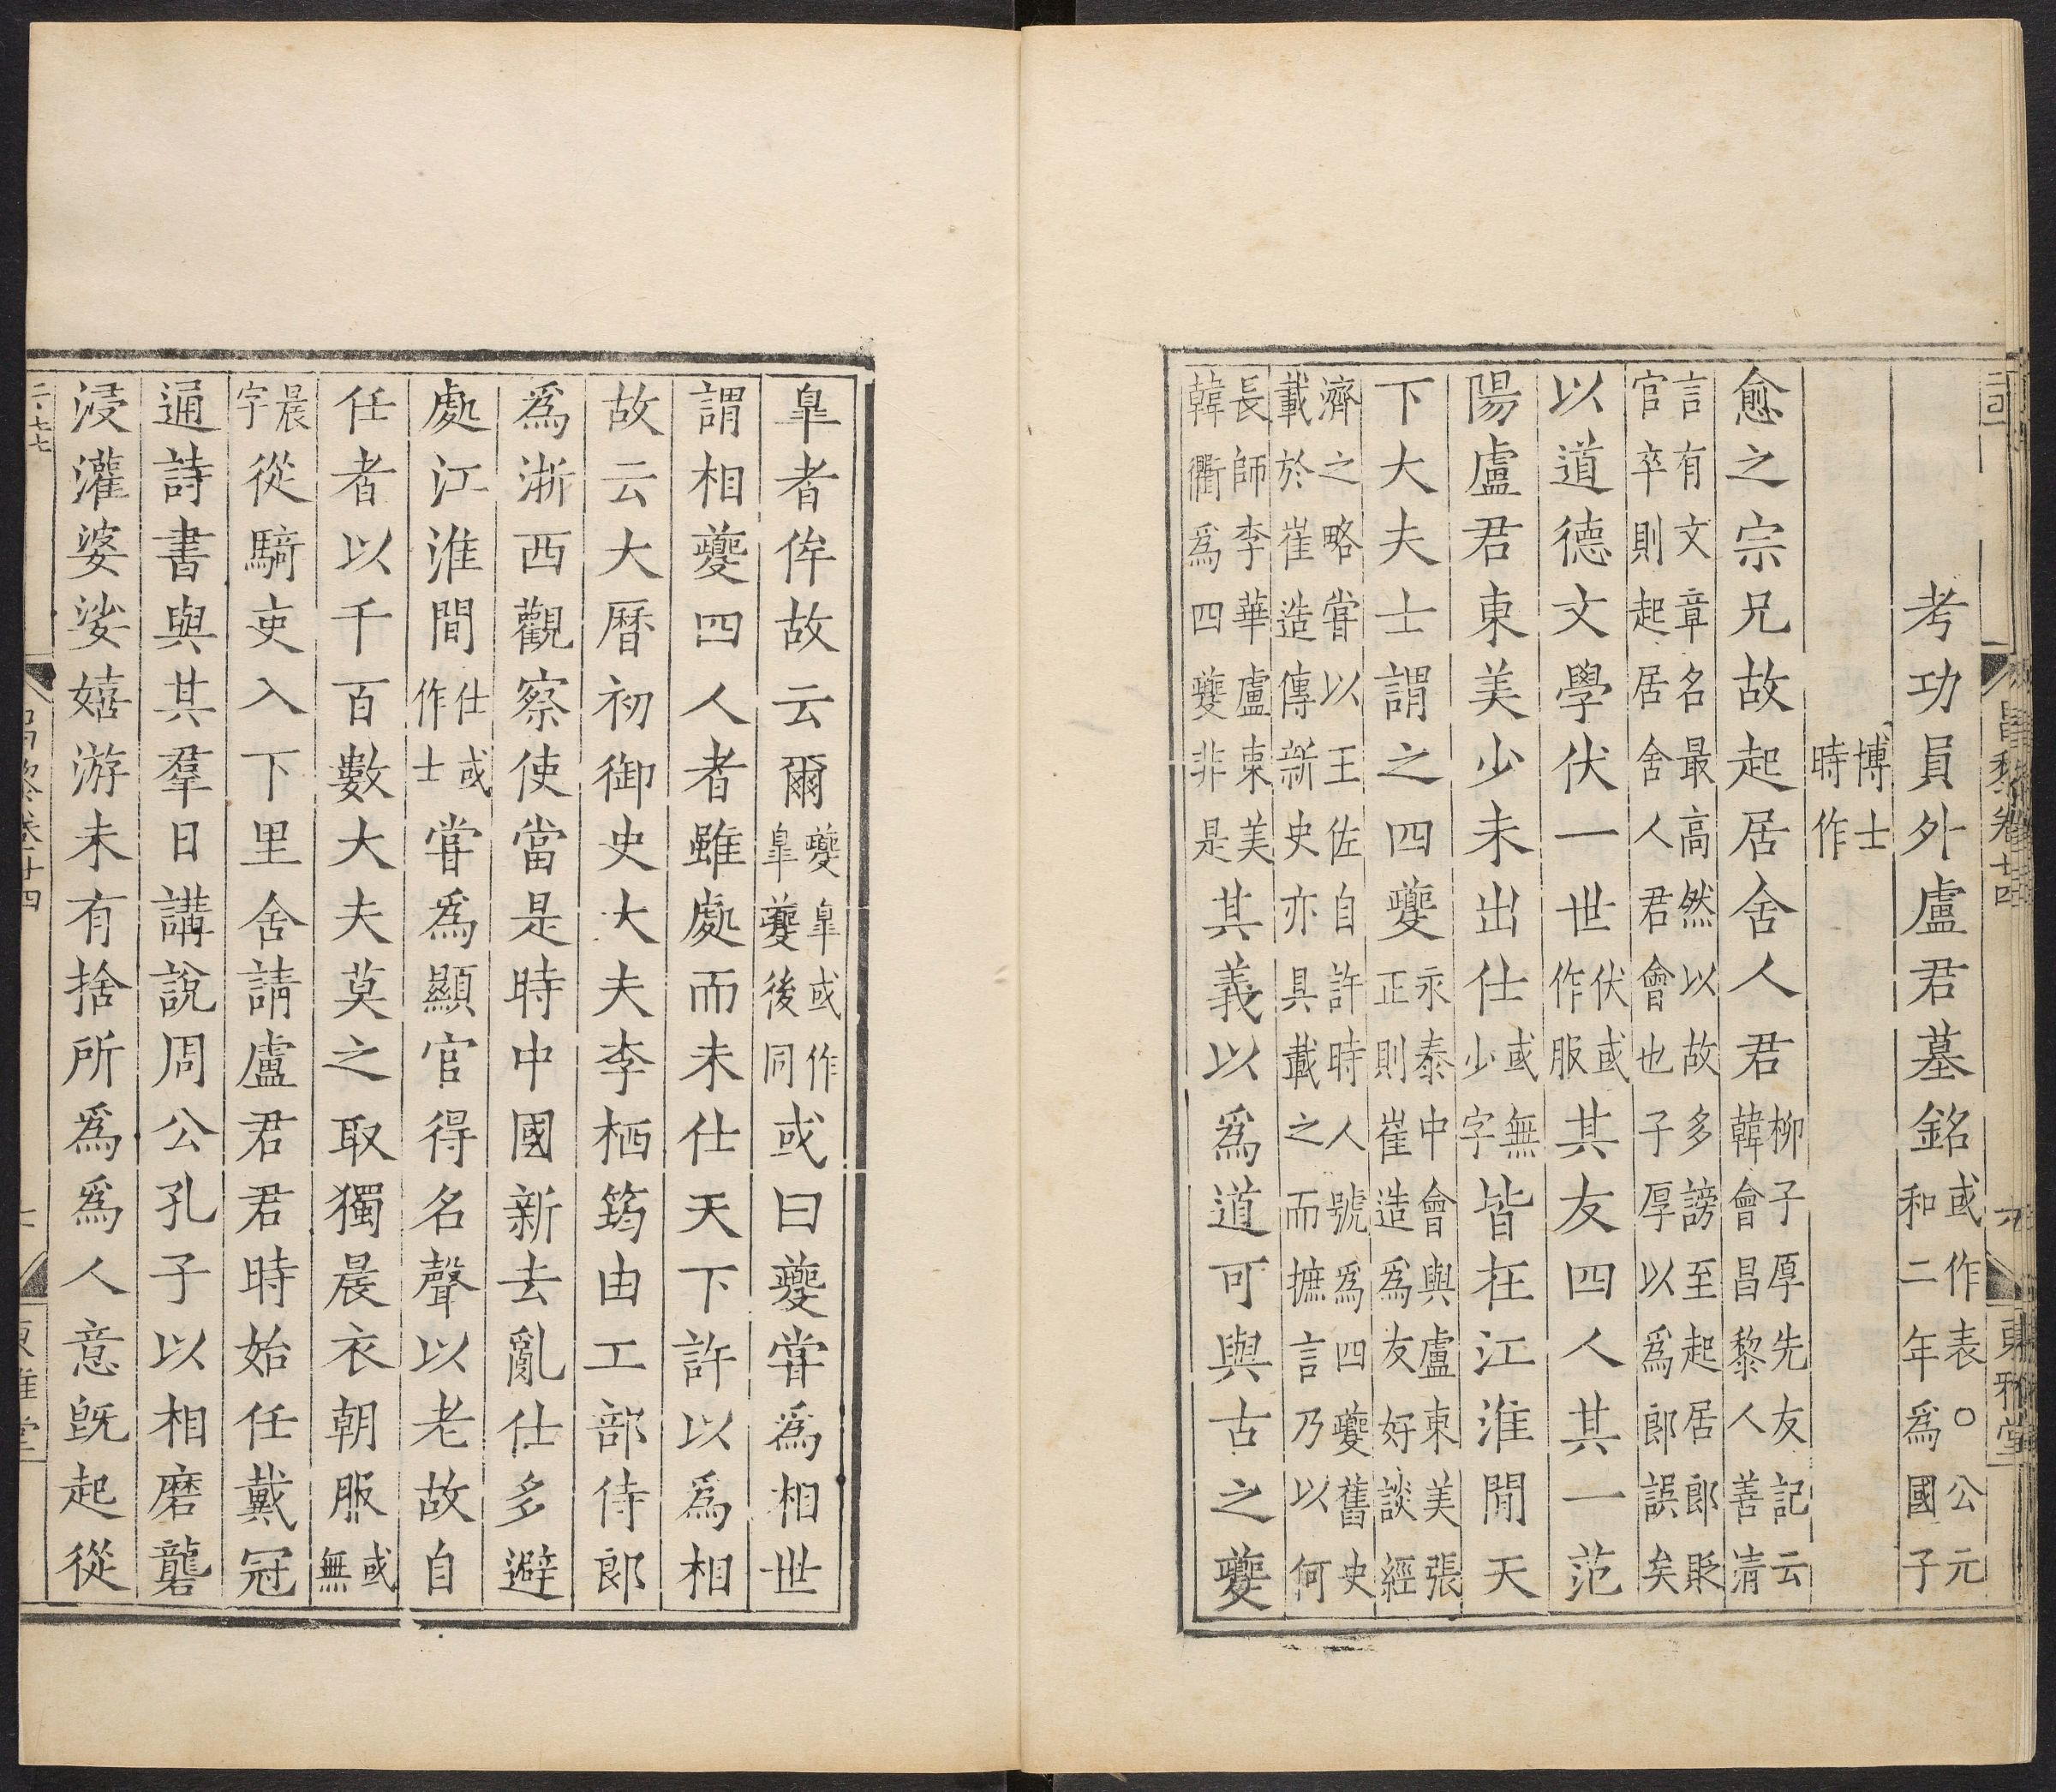 考功員外盧君墓銘或作表○公元和二年爲國子
博士時作
愈之宗兄故起居舍人君柳子厚先友記云韓會昌黎人善清
言有文章名最高然以故多謗至起居郎貶官卒則起居舍人君會也子厚以爲郎誤矣
以道德文學伏一世伏或作服其友四人其一范
陽盧君東美少未出仕或無少字皆在江淮閒天
下大夫士謂之四夔永泰中會與盧東美張正則崔造爲友好談經
濟之略嘗以王佐自許時人號爲四夔舊史載於崔造傳新史亦具載之而摭言乃以何
長師李華盧東美韓衢爲四夔非是其義以爲道可與古之夔
昌黎卷廿四
東雅堂
皐者侔故云爾夔皐或作皐夔後同或曰夔嘗爲相世
謂相夔四人者雖處而未仕天下許以爲相
故云大曆初御史大夫李栖筠由工部侍郎
爲浙西觀察使當是時中國新去亂仕多避
處江淮間仕或作士嘗爲顯官得名聲以老故自
任者以千百數大夫莫之取獨晨衣朝服或無
晨字從騎吏入下里舍請盧君君時始任戴冠
通詩書與其羣日講說周公孔子以相磨礲
浸灌婆娑嬉游未有捨所爲爲人意旣起從